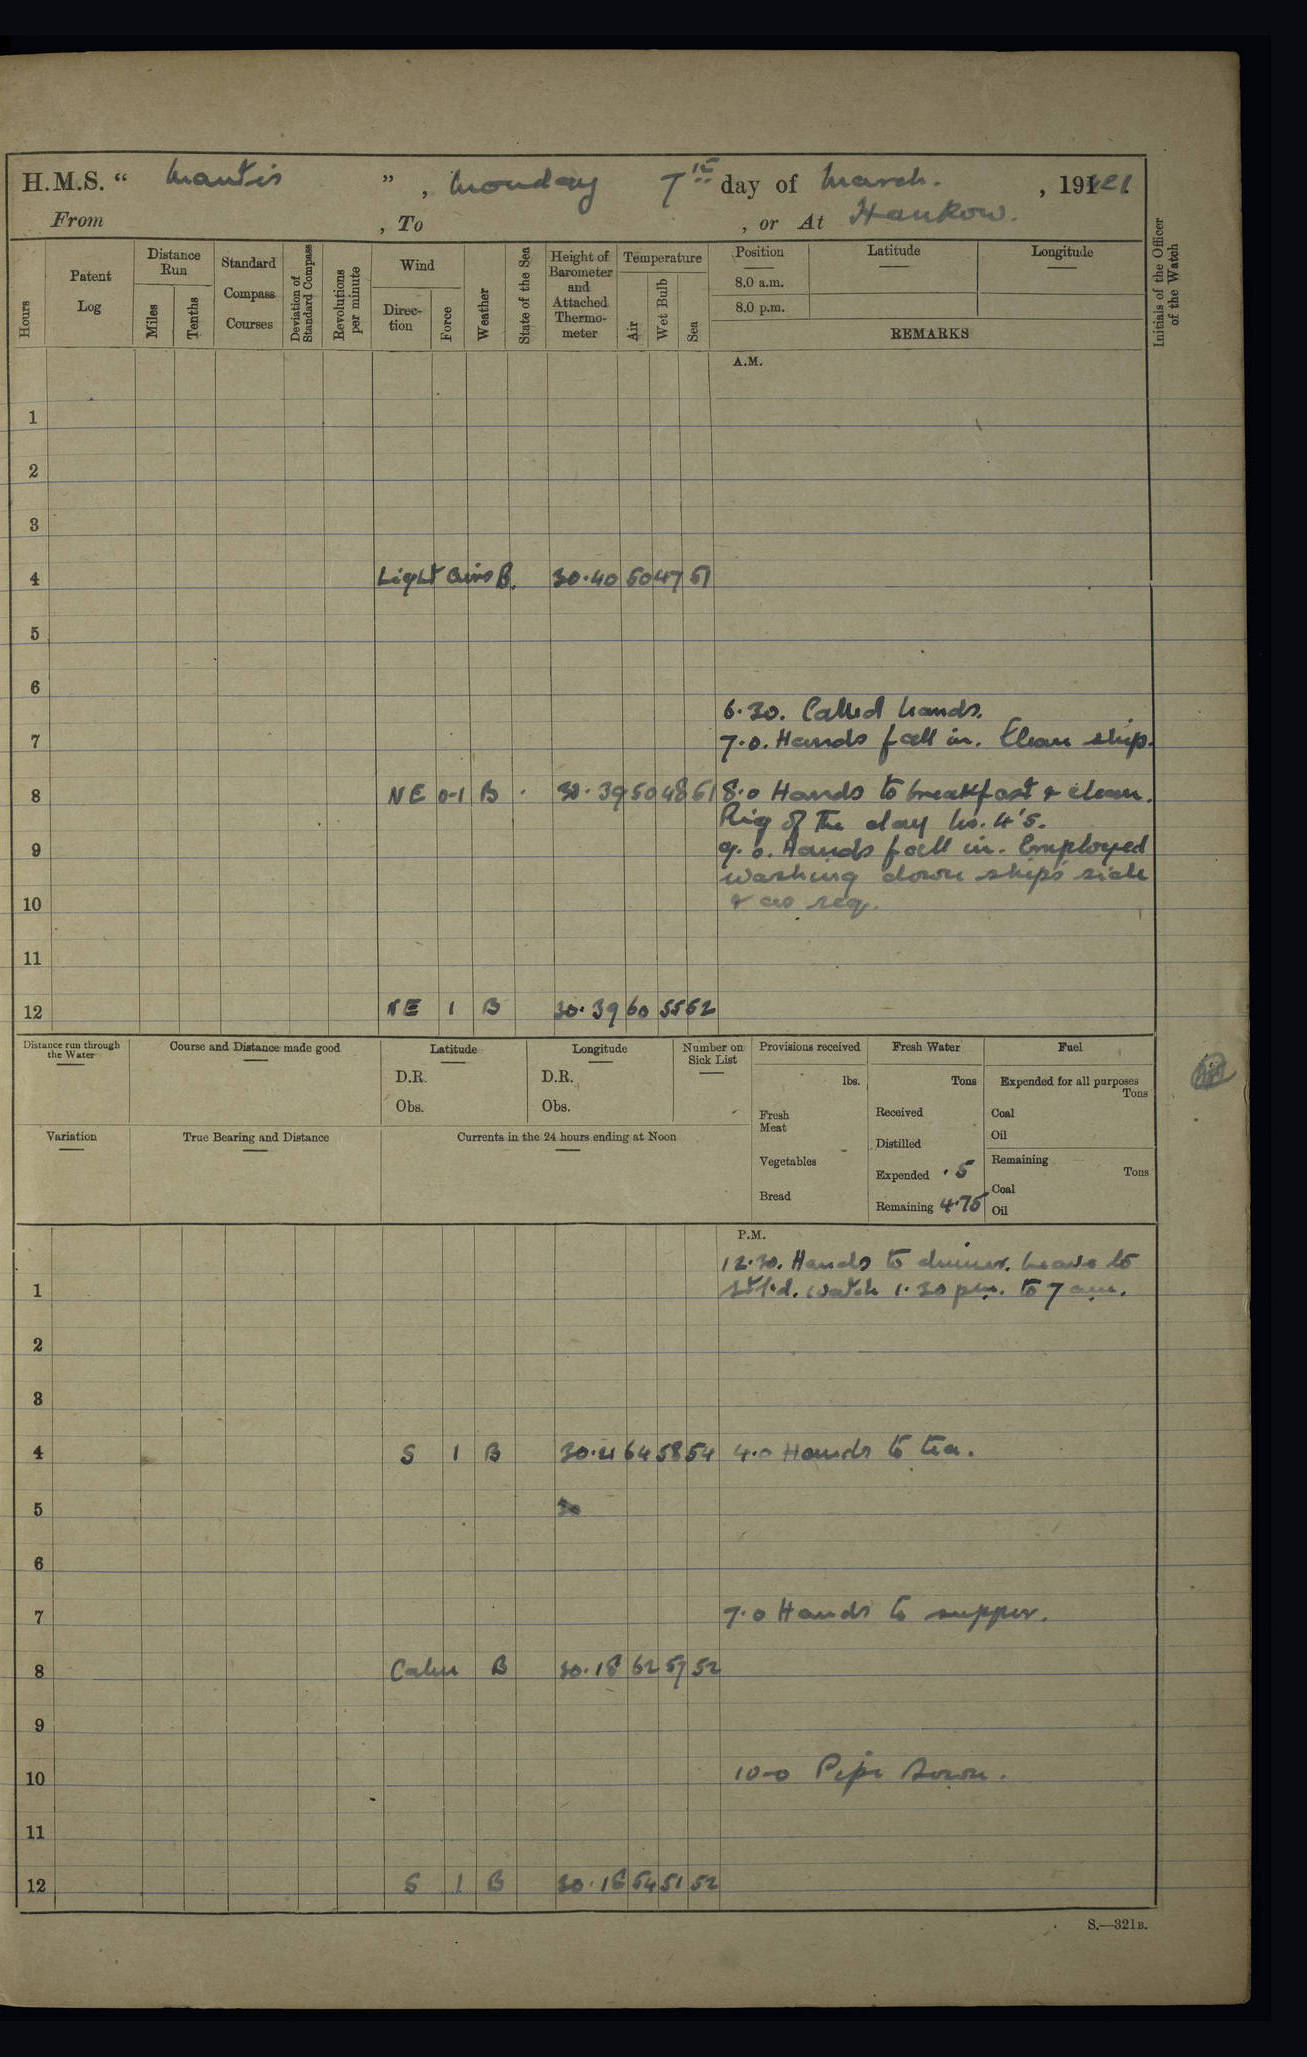 H.M.S. “ Mantis ” , Monday 7th day of March. , 1921
From , To , or At Hankow.
Hours
Patent Log
Distance Run
Miles
Tenths
Standard Compass Courses
Deviation of Standard Compass
Revolutions per minute
Wind
Direction
Force
Weather
State of the Sea
Height of Barometer and Attached Thermometer
Temperature
Air
Wet Bulb
Sea
Position
8.0 a.m.
8.0 p.m.
Latitude
Longitude
REMARKS
Initials of the Officer of the Watch
A.M.
1
2
3
4 Light airs B. 30.40 50 47 51
5
6
6.30. Called hands.
7 7.0. Hands fall in. Clean ship.
8 NE 0-1 B 30.39 50 48 51 8.0 Hands to breakfast & clean.
Rig of the day No. 4's.
9 9.0. Hands fall in. Employed
washing down ship's side
10 & as req.
11
12 NE 1 B 30.39 60 55 52
Distance run through the Water
Course and Distance made good
Latitude
D.R.
Obs.
Longitude
D.R.
Obs.
Number on Sick List
Provisions received
lbs.
Fresh Meat
Vegetables
Bread
Fresh Water
Tons
Received
Distilled
Expended .5
Remaining 4.75
Fuel
Expended for all purposes
Tons
Coal
Oil
Remaining
Tons
Coal
Oil
Variation
True Bearing and Distance
Currents in the 24 hours ending at Noon
P.M.
12.30. Hands to dinner. Leave to
1 stb'd. watch 1.30 pm. to 7 am.
2
3
4 S 1 B 30.21 64 58 54 4.0 Hands to tea.
5 30
6
7 7.0 Hands to supper.
8 Calm B 30.18 62 59 52
9
10 10-0 Pipe down.
11
12 S 1 B 30.18 54 51 52
S.—321B.